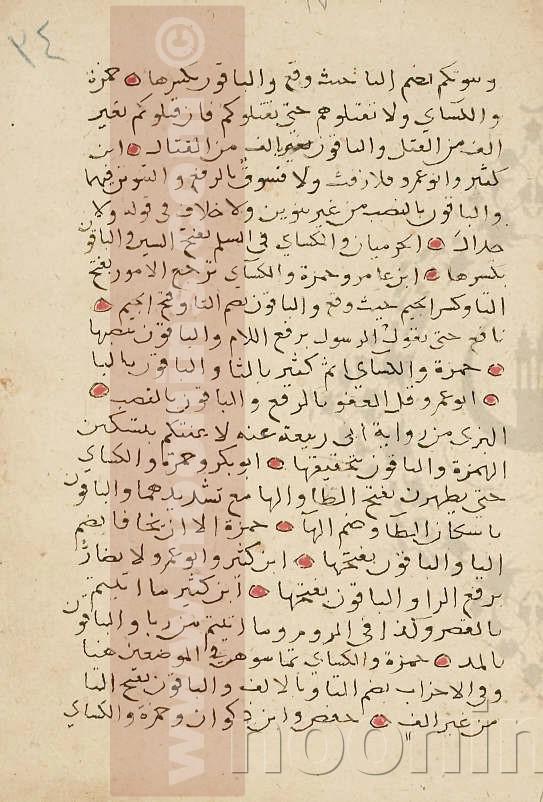 ٣٤
وبيوتكم بضم الباء حيث وقع والباقون بكسرها حمزة
والكسائي ولا تقتلوهم حتى يقتلوكم فان قتلوكم بغير
الف من القتل والباقون بغير الف من القتال ابن
كثير وابو عمرو فلا رفث ولا فسوق بالرفع والتنوين فيهما
والباقون بالنصب من غير تنوين ولا خلاف في قوله ولا
جدال الحرميان والكسائي في السلم بفتح السين والباقون
بكسرها ابن عامر وحمزة والكسائي ترجع الامور بفتح
التا وكسر الجيم حيث وقع والباقون بضم التا وفتح الجيم
نافع حتى يقول الرسول برفع اللام والباقون بنصبها
حمزة والكسائي اثم كثير بالثا والباقون بالبا
ابو عمرو قل العفو بالرفع والباقون بالنصب
البزي من رواية ابي ربيعة عنه لا عنتكم بتسكين
الهمزة والباقون بتحقيقها ابو بكر وحمزة والكسائي
حتى يطهرن بفتح الطا والها مع تشديدهما والباقون
باسكان الطا وضم الها حمزة الا ان يخافا بضم
اليا والباقون بفتحها ابن كثير وابو عمرو لا تضار
برفع الرا والباقون بفتحها ابن كثير ما اتيتم
بالقصر وكذا في الروم وما اتيتم من ربا والباقون
بالمد حمزة والكسائي تماسوهن في الموضعين هنا
وفي الاحزاب بضم التا وبالالف والباقون بفتح التا
من غير الف حفص وابن ذكوان وحمزة والكسائي
noorlin